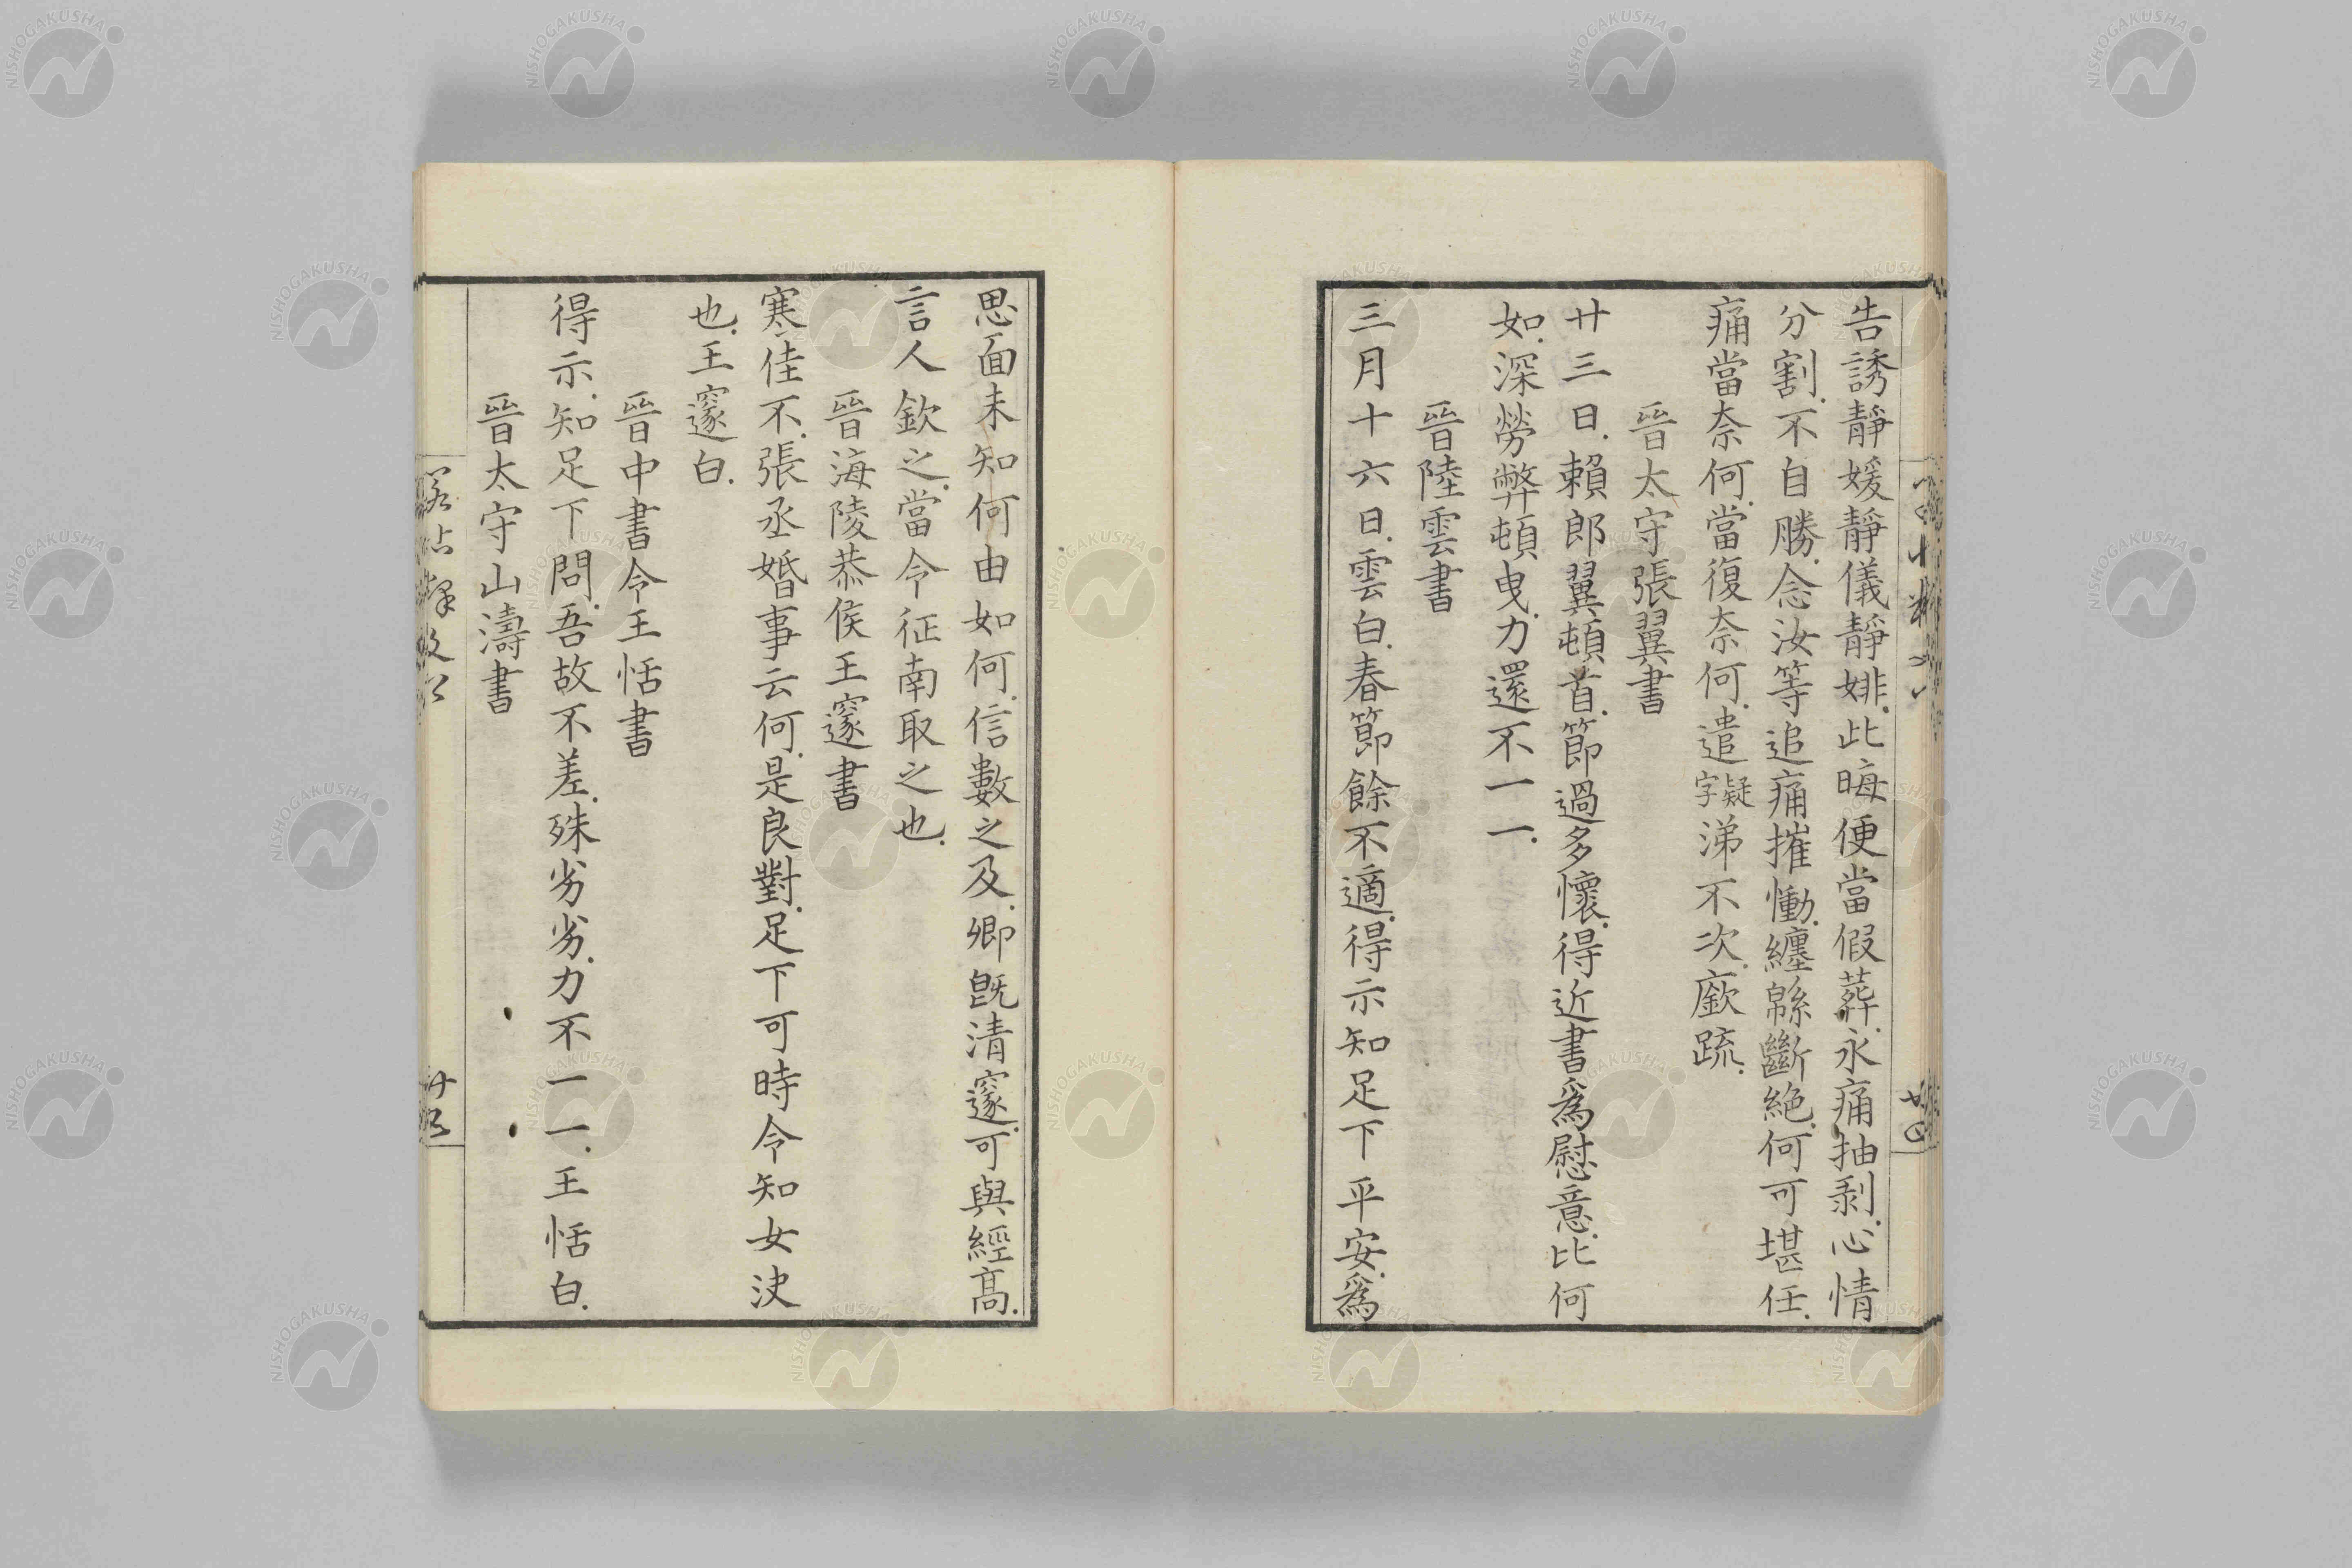 告誘靜媛靜儀靜婔此晦便當假葬永痛抽剥心情
分割不自勝念汝等追痛摧慟纏緜斷絶何可堪任
痛當奈何當復奈何遣疑字涕不次廞疏
晉太守張翼書
廿三日賴郎翼頓首節過多懷得近書爲慰意比何
如深勞弊頓曳力還不一一
晉陸雲書
三月十六日雲白春節餘不適得示知足下平安爲
思面未知何由如何信數之及卿旣清窻可與經髙
言人欽之當令征南取之也
晉海陵恭侯王邃書
寒佳不張丞婚事云何是良對足下可時令知女決
也王邃白
晉中書令王恬書
得示知足下問吾故不差殊劣劣力不一一王恬白
晉太守山濤書